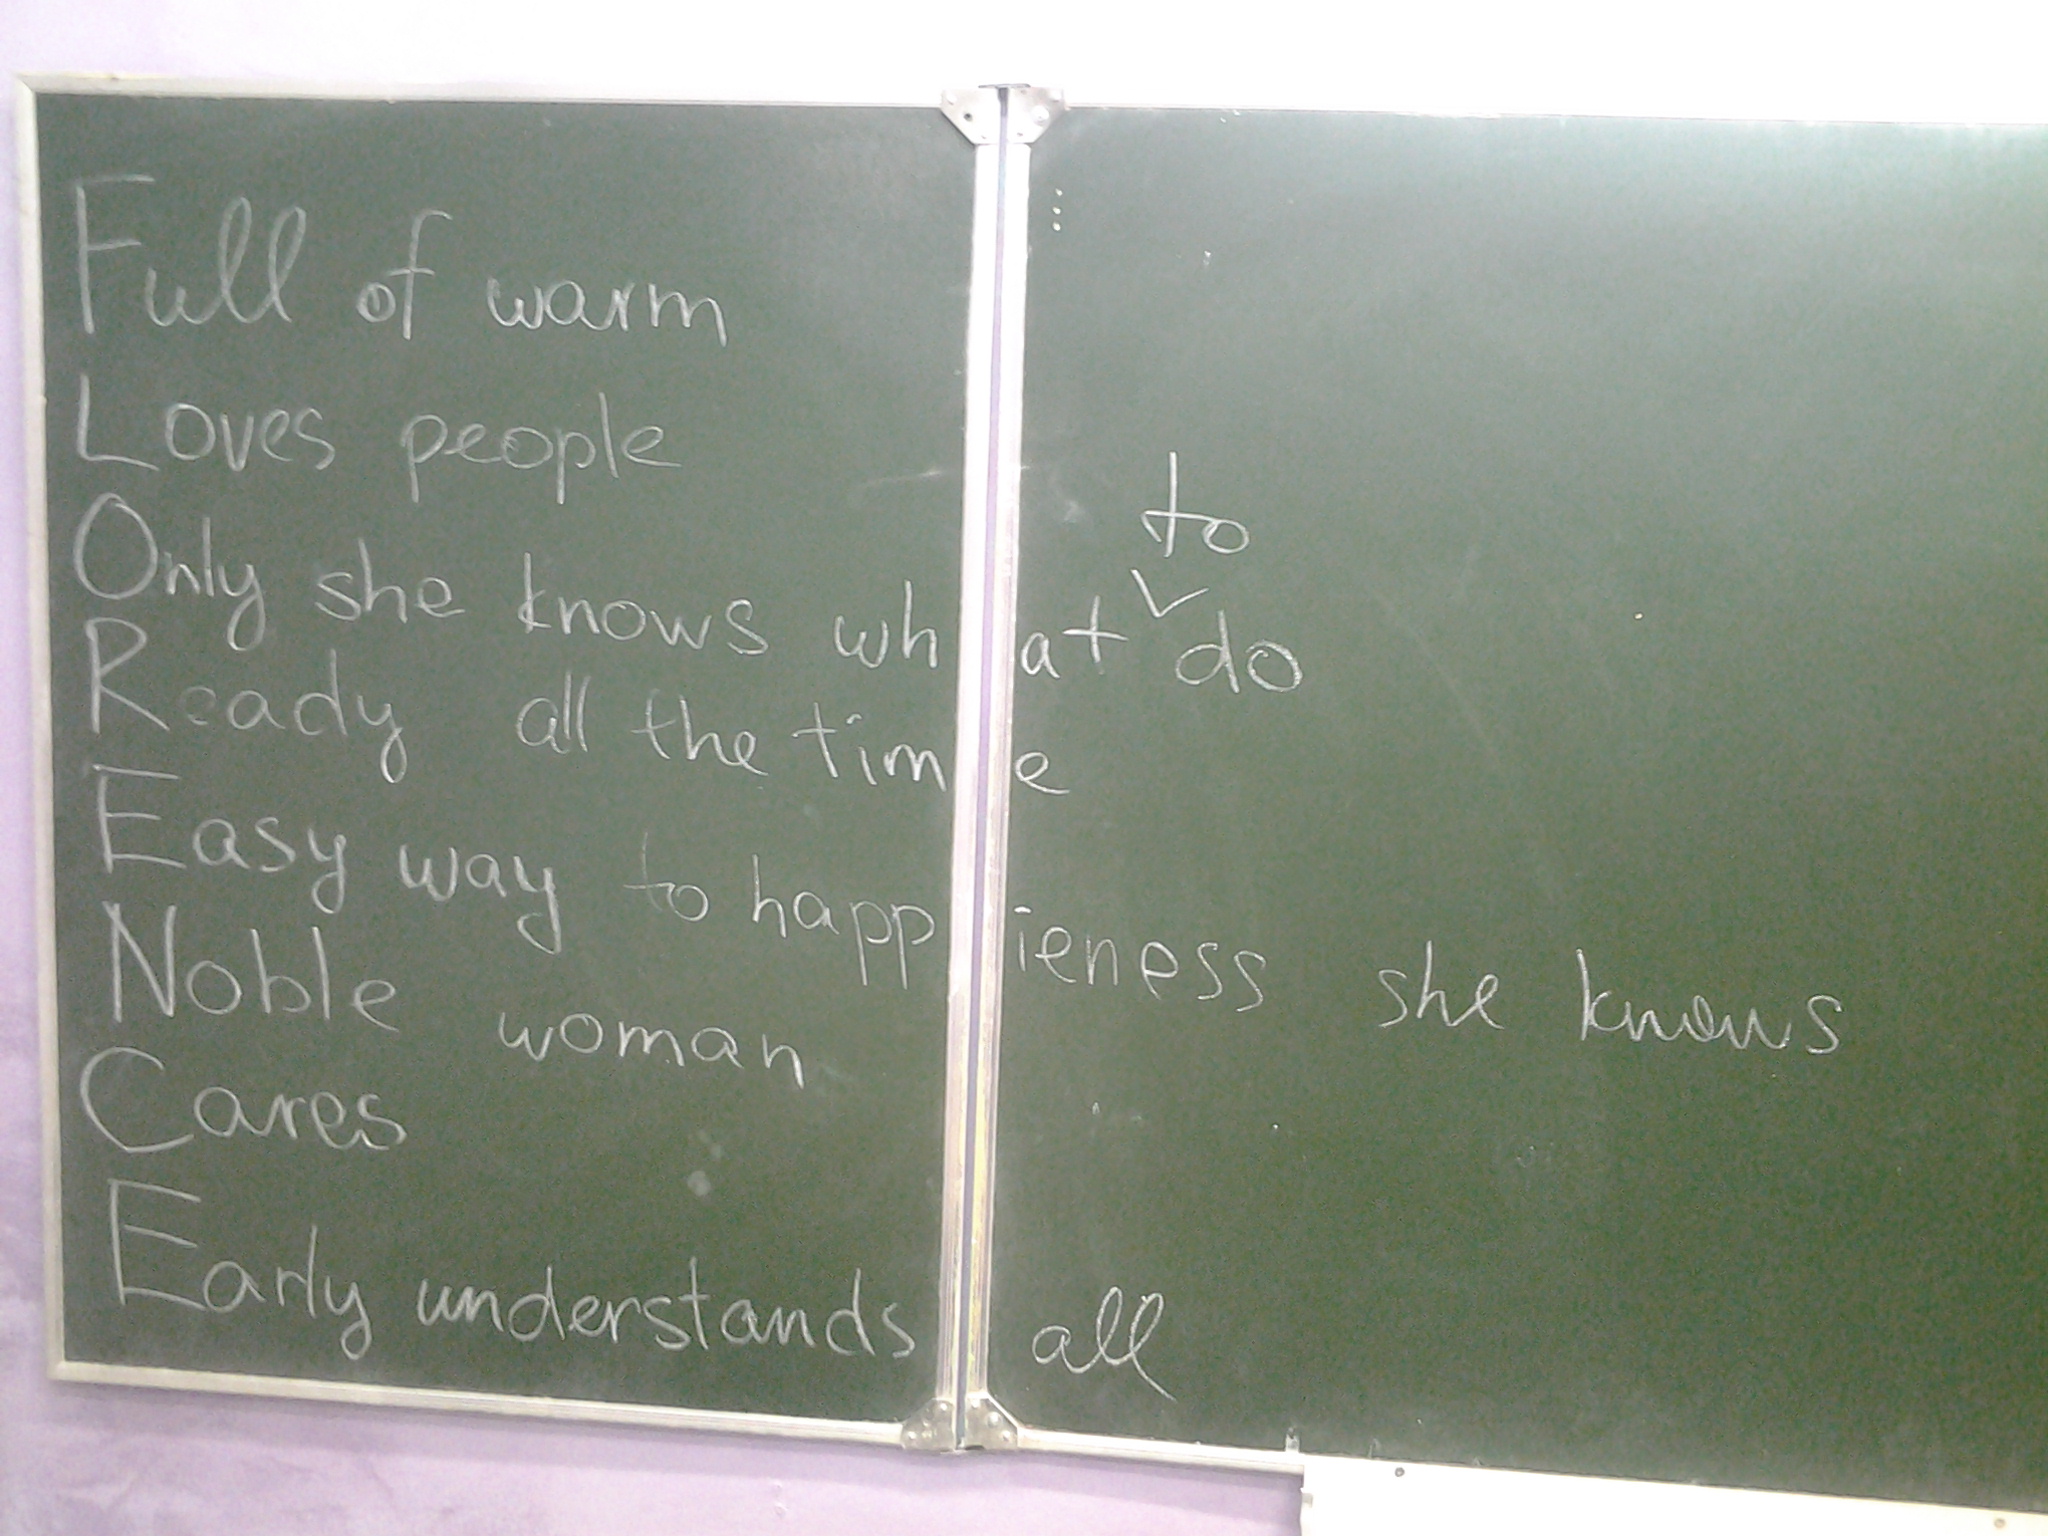 Full of warm
Loves people
Only she knows what to do
Ready all the time
Easy way to happieness she knows
Noble woman
Cares
Early understands all